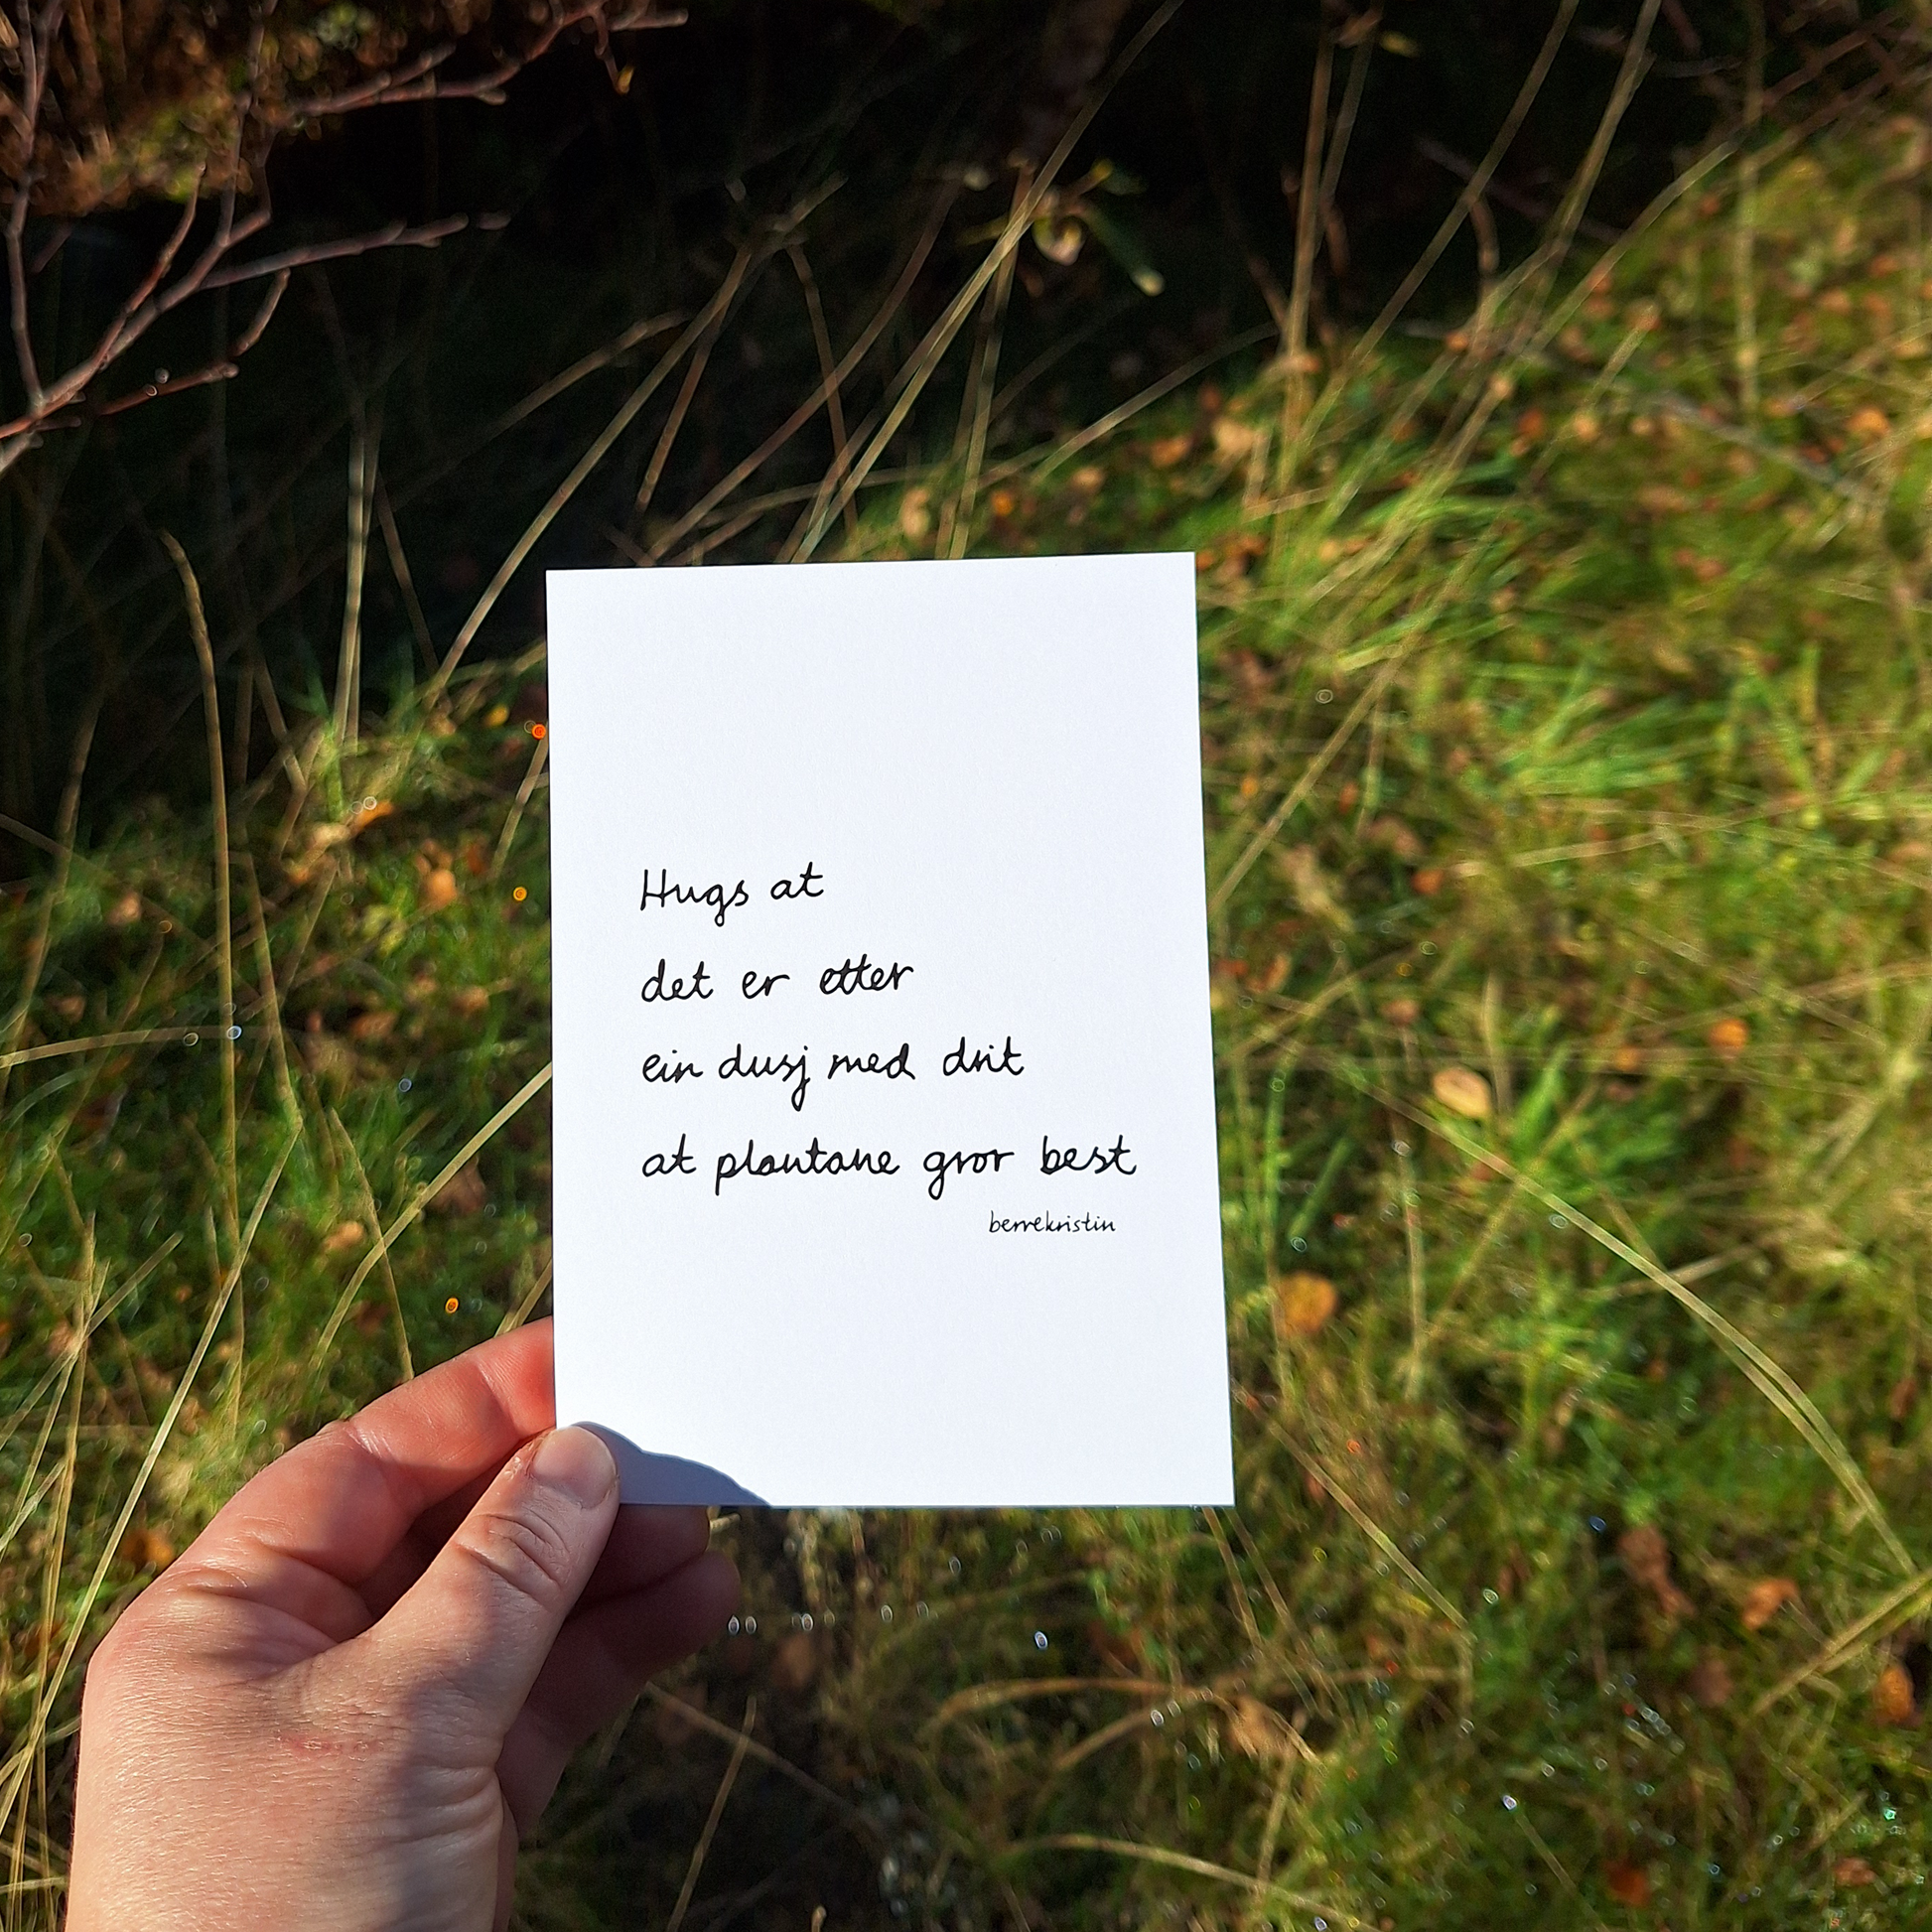 Hugs at
det er etter
ein dusj med drit
at plantane gror best
berrekristin